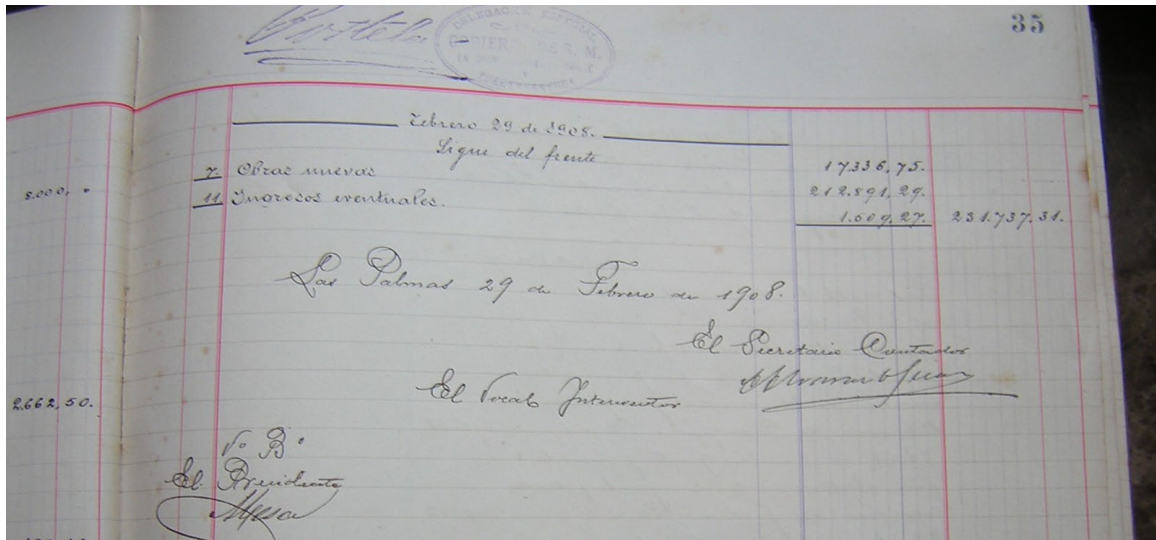 35
DELEGACIÓN ESPECIAL
GOBIERNO DE S. M.
Febrero 29 de 1908.
Sigue del frente 17.336,75.
7. Obras nuevas 212.891,29.
8.000, "
11 Ingresos eventuales. 1.509,27. 231.737,31.
Las Palmas 29 de Febrero de 1908.
El Secretario Contador
El Vocal Interventor
2.662,50.
Vº Bº
El Presidente
Mesa